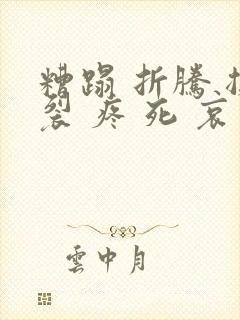 糟蹋 折騰
裂 疼 死 哀
雲中月